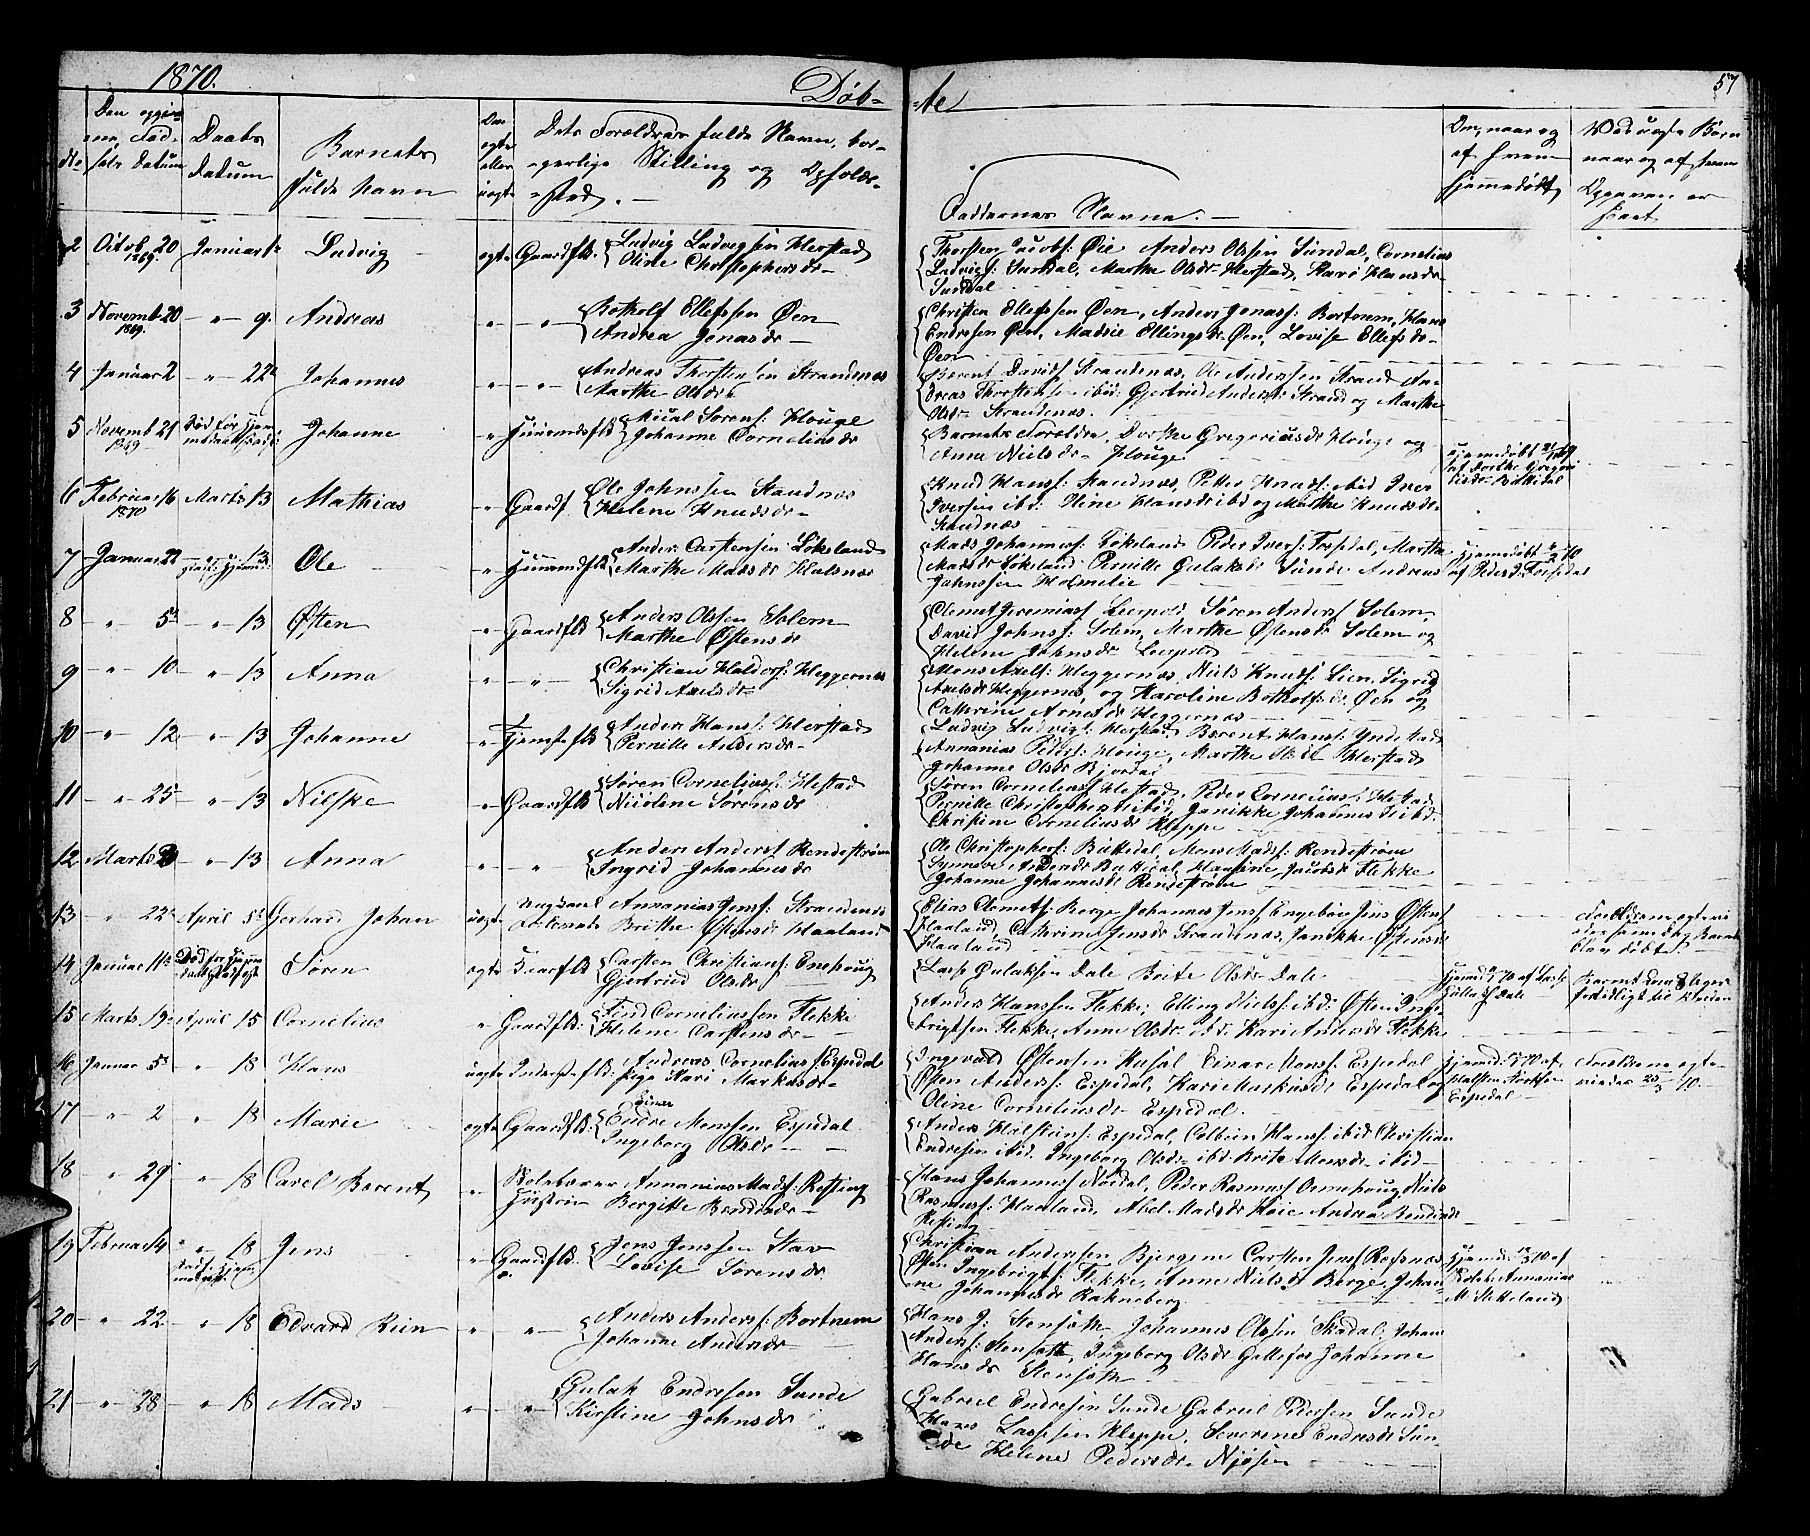 1870.
Døb-
-te
57
Den opgiv-
ne Fød-
sels Datum
Daabs
Datum
Barnets
fulde Navn
ægte
eller
uægte
Dets Forældres fulde Navn, bor-
-gerlige Stilling og Opholds-
-sted. -
Faddernes Navne. -
Om, naar og
af hvem
hjemmedøbt
Ved uægte Børn
naar og af hvem
Opgaven er
skeet
2 Octob 20 1869. Januar 1 Ludvig ægte Gaardflk. Ludvig Ludvigsen Herstad
Oline Christophersdr -
Thorsten Jacobs: Øie Anders Olssen Sundal, Cornelius
Ludvigs: Sundal, Marthe Olsdr Herstad, Kari Hansdr
Sundal
3 Novemb 20 1869. - " - 9. Andreas " - " - Botholf Ellefssen Øen
Andrea Jonasdr -
Christen Ellefssen Øen, Anders Jonass: Bortnem, Hans
Endresen Øen, Madsie Ellingsdr Øen, Lovise Ellefsdr
Øen
4 Januar 2 - " - 22 Johannes " - " - Andreas Thorstensen Strandenæs
Marthe Olsdr
Berent Davids Strandenæs, Ole Anderssen Strand An-
dreas Thorstensen ibid: Gjertrud Andersdr Strand og Marthe
Olsdr Strandenæs.
5 Novemb 21 1869 Johanne " Huusmdsflk Micael Sørens: Houge
Johanne Corneliusdr
Barnets Forældre, Dorthe Gregoriusdr Houge og
Anne Nielsdr Houge
hjemmedøbt 21/11 69
af Dorthe Gregori
usdr Bakkedal
6 Februar 16 1870 Marts 13 Mathias " Gaardf Ole Johnssen Sandnæs
Helene Knudsdr -
Knud Hanss: Sandnæs, Petter Knuds: ibid Iver
Iversen ibd: Oline Hansdr ibd og Marthe Knudsdr
Sandnæs
7 Januar 22 - " - 13 Ole " Huusmdflk Anders Carstensen Løkeland
Marthe Madsdr Hatsnæs
Mads Johanness: Løkeland Peder Ivers: Torsdal, Marthe
Madsdr Løkeland Pernille Gulaksdr Sunde Andreas
Johnssen Holmelie
8 - " - 5 - " - 13 Østen " Gaardflk Anders Olssen Solem
Marthe Østensdr
Clemet Jeremiass Leerpold, Søren Anders Solem,
David Johnss: Solem, Marthe Østensdr Solem og
Helene Johnsdr Leerpold
9 - " - 10 - " - 13 Anna " - " Christian Haldors: Heggernæs
Sigrid Axelsdr -
Mons Axels: Heggernæs, Niels Knuds: Lien, Sigrid
Axelsdr Heggernæs, og Karoline Botholfsdr Øen og
Cathrine Arnesdr Heggernæs
10 - " - 12 - " - 13 Johanne " Tjenesteflk Anders Hans: Herstad
Pernille Andersdr -
Ludvig Ludvigs: Herstad, Berent Hans: Yndestad
Annanias Peders: Houge, Marthe Olsdr Herstad
Johanne Olsdr Bjordal
11 - " - 25 - " - 13 Nilske " Gaardflk Søren Corneliuss: Hestad
Nicoline Sørensdr
Søren Corneliuss Hestad, Peder Cornelius: Hestad
Pernille Christophersdr ibid, Janikke Johannesdr ibd.
Christine Corneliusdr Kleppe
12 Marts - " - 13 Anna " - " Anders Anders Rendestrøm
Ingrid Johannesdr
Ole Christophers: Bakkedal, Mons Mads: Rendestrøm
Synneve Andersdr Bakkedal, Hansine Jacobsdr Flekke
Johanne Johannesdr Rendestrøm
13 - " - 22 April 5 Gerhard Johan uægt Annanias Jens: Strandenæs
Brithe Østensdr Haaland
Elias Clemets: Berge Johannes Jens: Engebøe Jens Østens
Haaland, Cathrine Jensdr Strandenæs, Janikke Østensdr
Haaland
14 Januar 11 Søren ægte Carsten Christians: Enehoug
Gjertrud Olsdr
Lasse Gulaksen Dale Brite Olsdr Dale
15 Marts 19 April 15 Cornelius " Gaardflk: Find Corneliussen Flekke
Helene Carstensdr -
Anders Hanssen Flekke, Elling Niels: ibd: Østen Inge-
brigtsen Flekke, Anne Olsdr ibd: Kari Andersdr Flekke
16 Januar 5 " 18 Hans uægte Inderstflk: Andreas Cornelius: Espedal
pige Kari Markusdr -
Ingevald Østensen Husøl Einar Mons: Espedal
Østen Anders: Espedal, Kari Markusdr Espedal og
Oline Corneliusdr Espedal.
Forældrene egte-
17 - " - 2 " 18 Marie ægte Gaardflk: Einar
Endre Monsen Espedal
Ingeborg Olsdr - -
Anders Halsteins: Espedal, Colbein Hans: ibid Christian
Endresen ibid. Ingeborg Olsdr ibd. Brite Monsdr ibid -
18 " 29 " 18 Carel Berent " Skoleholder Annanias Mads: Resting
Hustrue Bergitte Bendixdr -
Hans Johannes Nordal, Peder Rasmus Ormehoug, Niels
Rasmuss: Haaland, Abel Madsdr Høie Andrea Bendixdr
Resting
19 Februar 14 " 18 Jens " Gaardflk: Jens Jenssen Stav
Lovise Sørensdr
Christian Andersen Bjergene Carsten Jens: Refsnæs
Østen Ingebrigts: Flekke, Anne Nielsdr Berge, Johan-
ne Johannesdr Rakneberg
20 - " - 22 " 18 Edvard Rein " " Anders Anders: Bortnem
Johanne Andersdr -
Hans J: Stensøth, Johannes Olssen Skadal, Johan
Anders: Stensøth, Ingeborg Olsdr Gallefos Johanne
Hansdr Stensøth
21 - " - 28 " 18 Mads " - " - Gulak Endresen Sunde
Kirstine Johnsdr
Gabriel Endresen Sunde Gabriel Pedersen Sunde
Hans Lassesen Kleppe, Severine Endresdr Sun-
de Helene Pedersdr Njøsen